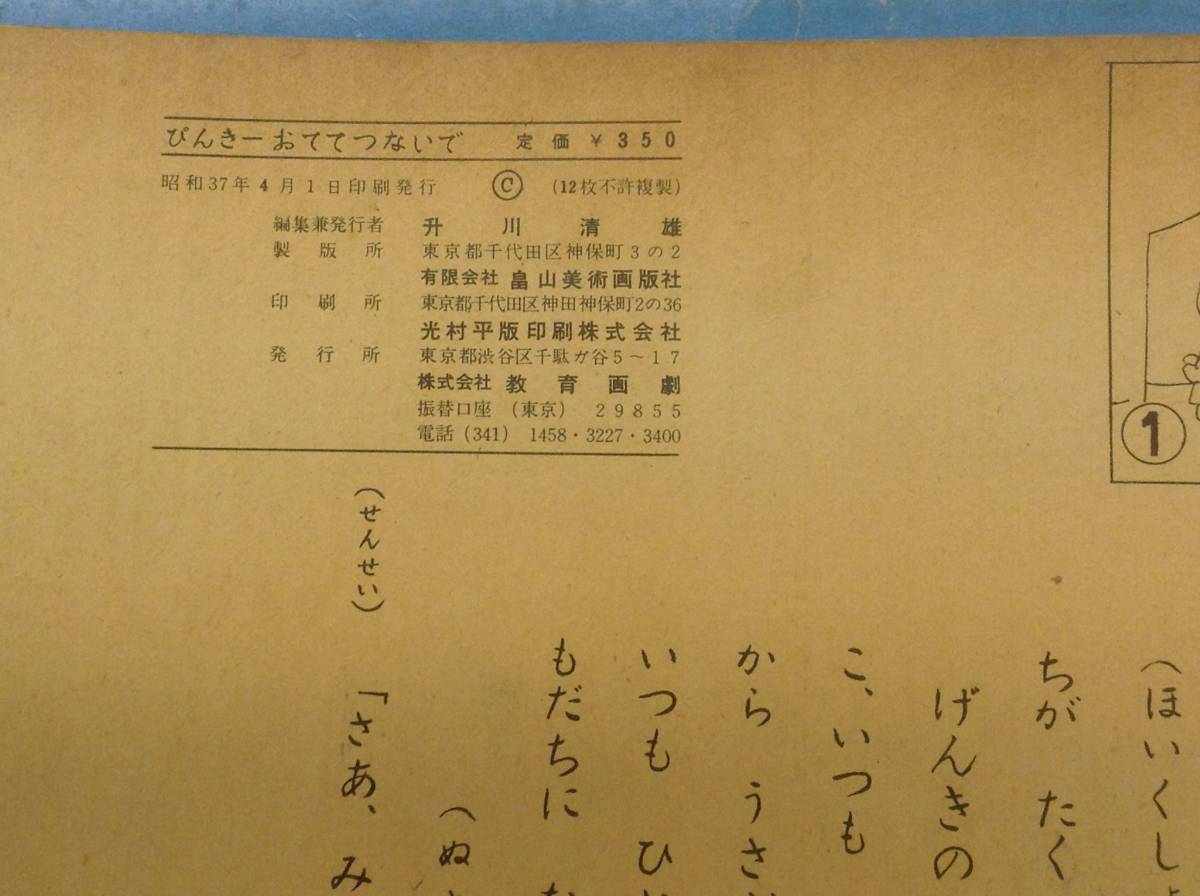 ぴんきーおててつないで 定価 ¥350
昭和37年4月1日印刷発行 © (12枚不許複製)
編集兼発行者 升川清雄
製版所 東京都千代田区神保町3の2
有限会社 畠山美術画版社
印刷所 東京都千代田区神田神保町2の36
光村平版印刷株式会社
発行所 東京都渋谷区千駄ガ谷5~17
株式会社 教育画劇
振替口座 (東京) 29855
電話(341) 1458・3227・3400
①
(ほいくし
ちが たく
げんきの
こ、いつも
から うさ
いつも ひ
もだちに
(ぬ
(せんせい) 「さあ、み